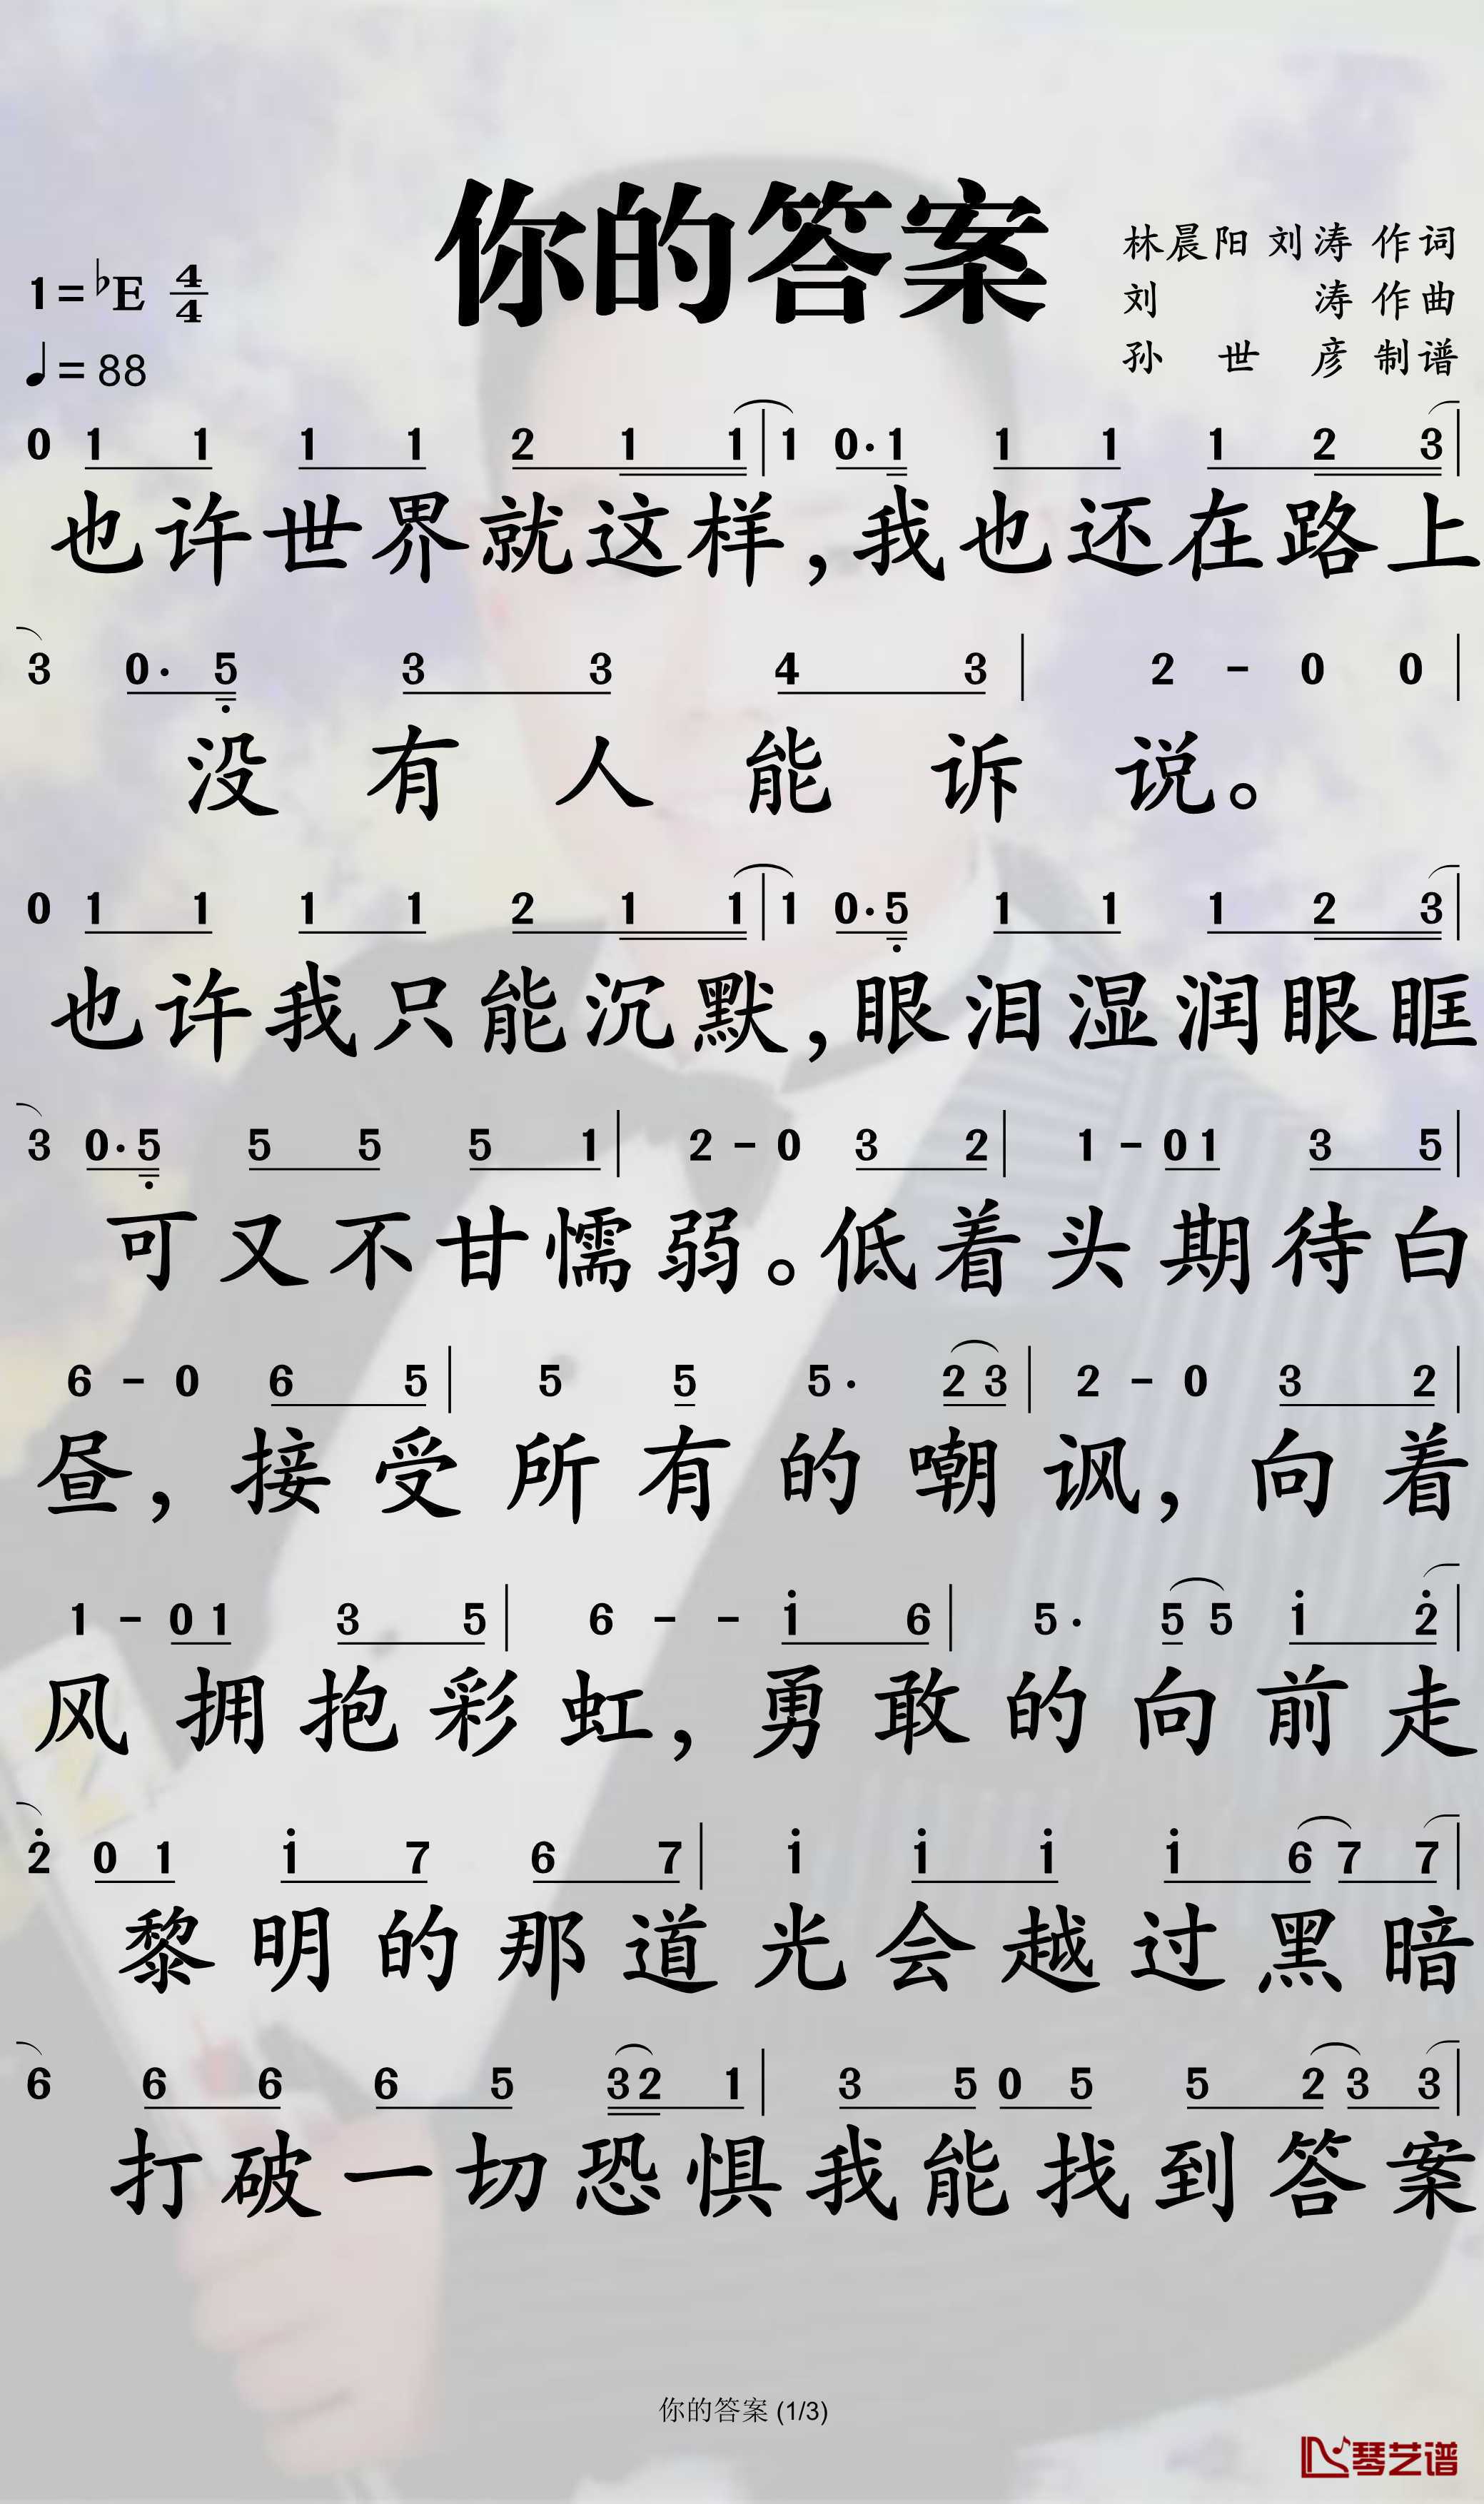 你的答案
林晨阳 刘涛 作词
刘 涛 作曲
孙 世 彦 制谱
1=♭E 4/4
♩=88
0 1 1 1 1 2 1 1 | 1 0· 1 1 1 1 2 3 |
也许世界就这样，我也还在路上
3 0· 5 3 3 4 3 | 2 - 0 0 |
没有人能诉说。
0 1 1 1 1 2 1 1 | 1 0· 5 1 1 1 2 3 |
也许我只能沉默，眼泪湿润眼眶
3 0· 5 5 5 5 1 | 2 - 0 3 2 | 1 - 0 1 3 5 |
可又不甘懦弱。低着头期待白
6 - 0 6 5 | 5 5 5· 2 3 | 2 - 0 3 2 |
昼，接受所有的嘲讽，向着
1 - 0 1 3 5 | 6 - - i 6 | 5· 5 5 i 2̇ |
风拥抱彩虹，勇敢的向前走
2̇ 0 1 i 7 6 7 | i i i i 6 7 7 |
黎明的那道光会越过黑暗
6 6 6 6 5 3 2 1 | 3 5 0 5 5 2 3 3 |
打破一切恐惧我能找到答案
你的答案 (1/3)
琴艺谱